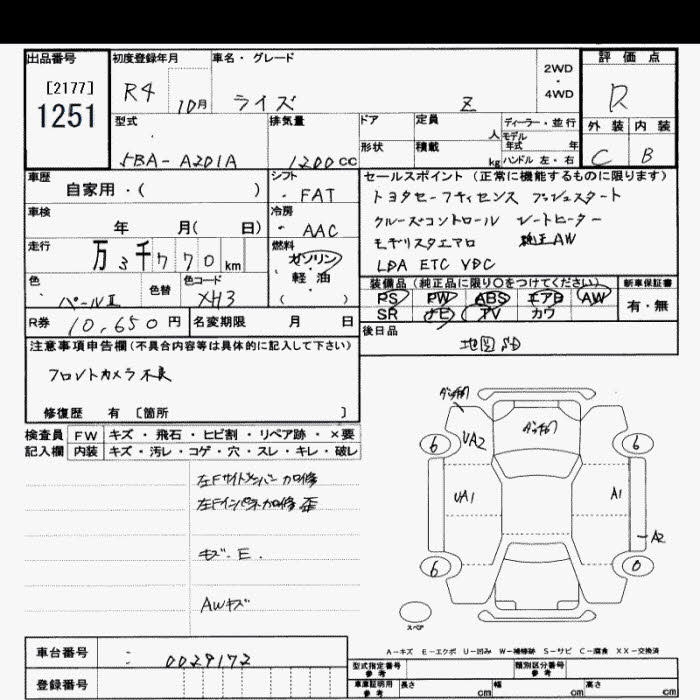 出品番号
[2177]
1251
初度登録年月
R4 10月
車名・グレード
ライズ Z
2WD
・
4WD
評価点
R
外装 内装
C B
型式
5BA-A201A
排気量
1200cc
ドア
形状
定員
人
積載
kg
ディーラー・並行
モデル
年式 年
ハンドル 左・右
車歴
自家用・( )
シフト
FAT
車検
年 月( 日)
冷房
AAC
走行
万3千770km
燃料
ガソリン
・
軽油
( )
色
パールII
色替
色コード
XH3
R券
10,650円
名変期限 月 日
セールスポイント(正常に機能するものに限ります)
トヨタセーフティセンス プッシュスタート
クルーズコントロール シートヒーター
モデリスタエアロ 純正AW
LDA ETC VDC
装備品(純正品に限り○をつけてください)
PS PW ABS エアB AW
SR ナビ TV カワ
新車保証書
有・無
後日品
地図SD
注意事項申告欄(不具合内容等は具体的に記入して下さい)
フロントカメラ不良
修復歴 有 〔箇所 〕
検査員
記入欄
FW キズ・飛石・ヒビ割・リペア跡・×要
内装 キズ・汚レ・コゲ・穴・スレ・キレ・破レ
左Fサイドメンバー加修
左Fインパネ加修 歪
キズ・E.
AWキズ
6
UA2
6
UA1
A1
A2
6
0
スペア
A-キズ E-エクボ U-凹み W-補修跡 S-サビ C-腐食 XX-交換済
車台番号
0029172
登録番号
型式指定番号
参考
類別区分番号
参考
車庫証明用
参考
長さ cm 幅 cm 高さ cm